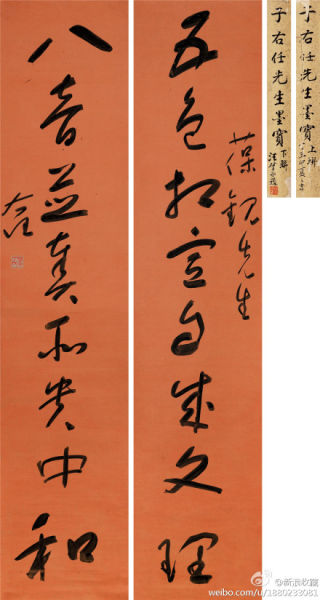 五色相宣自成文理
先生
八音並奏所貴中和
右任
于右任先生墨寶 上聯
于右任先生墨寶 下聯
新浪收藏
weibo.com/u/1880233081